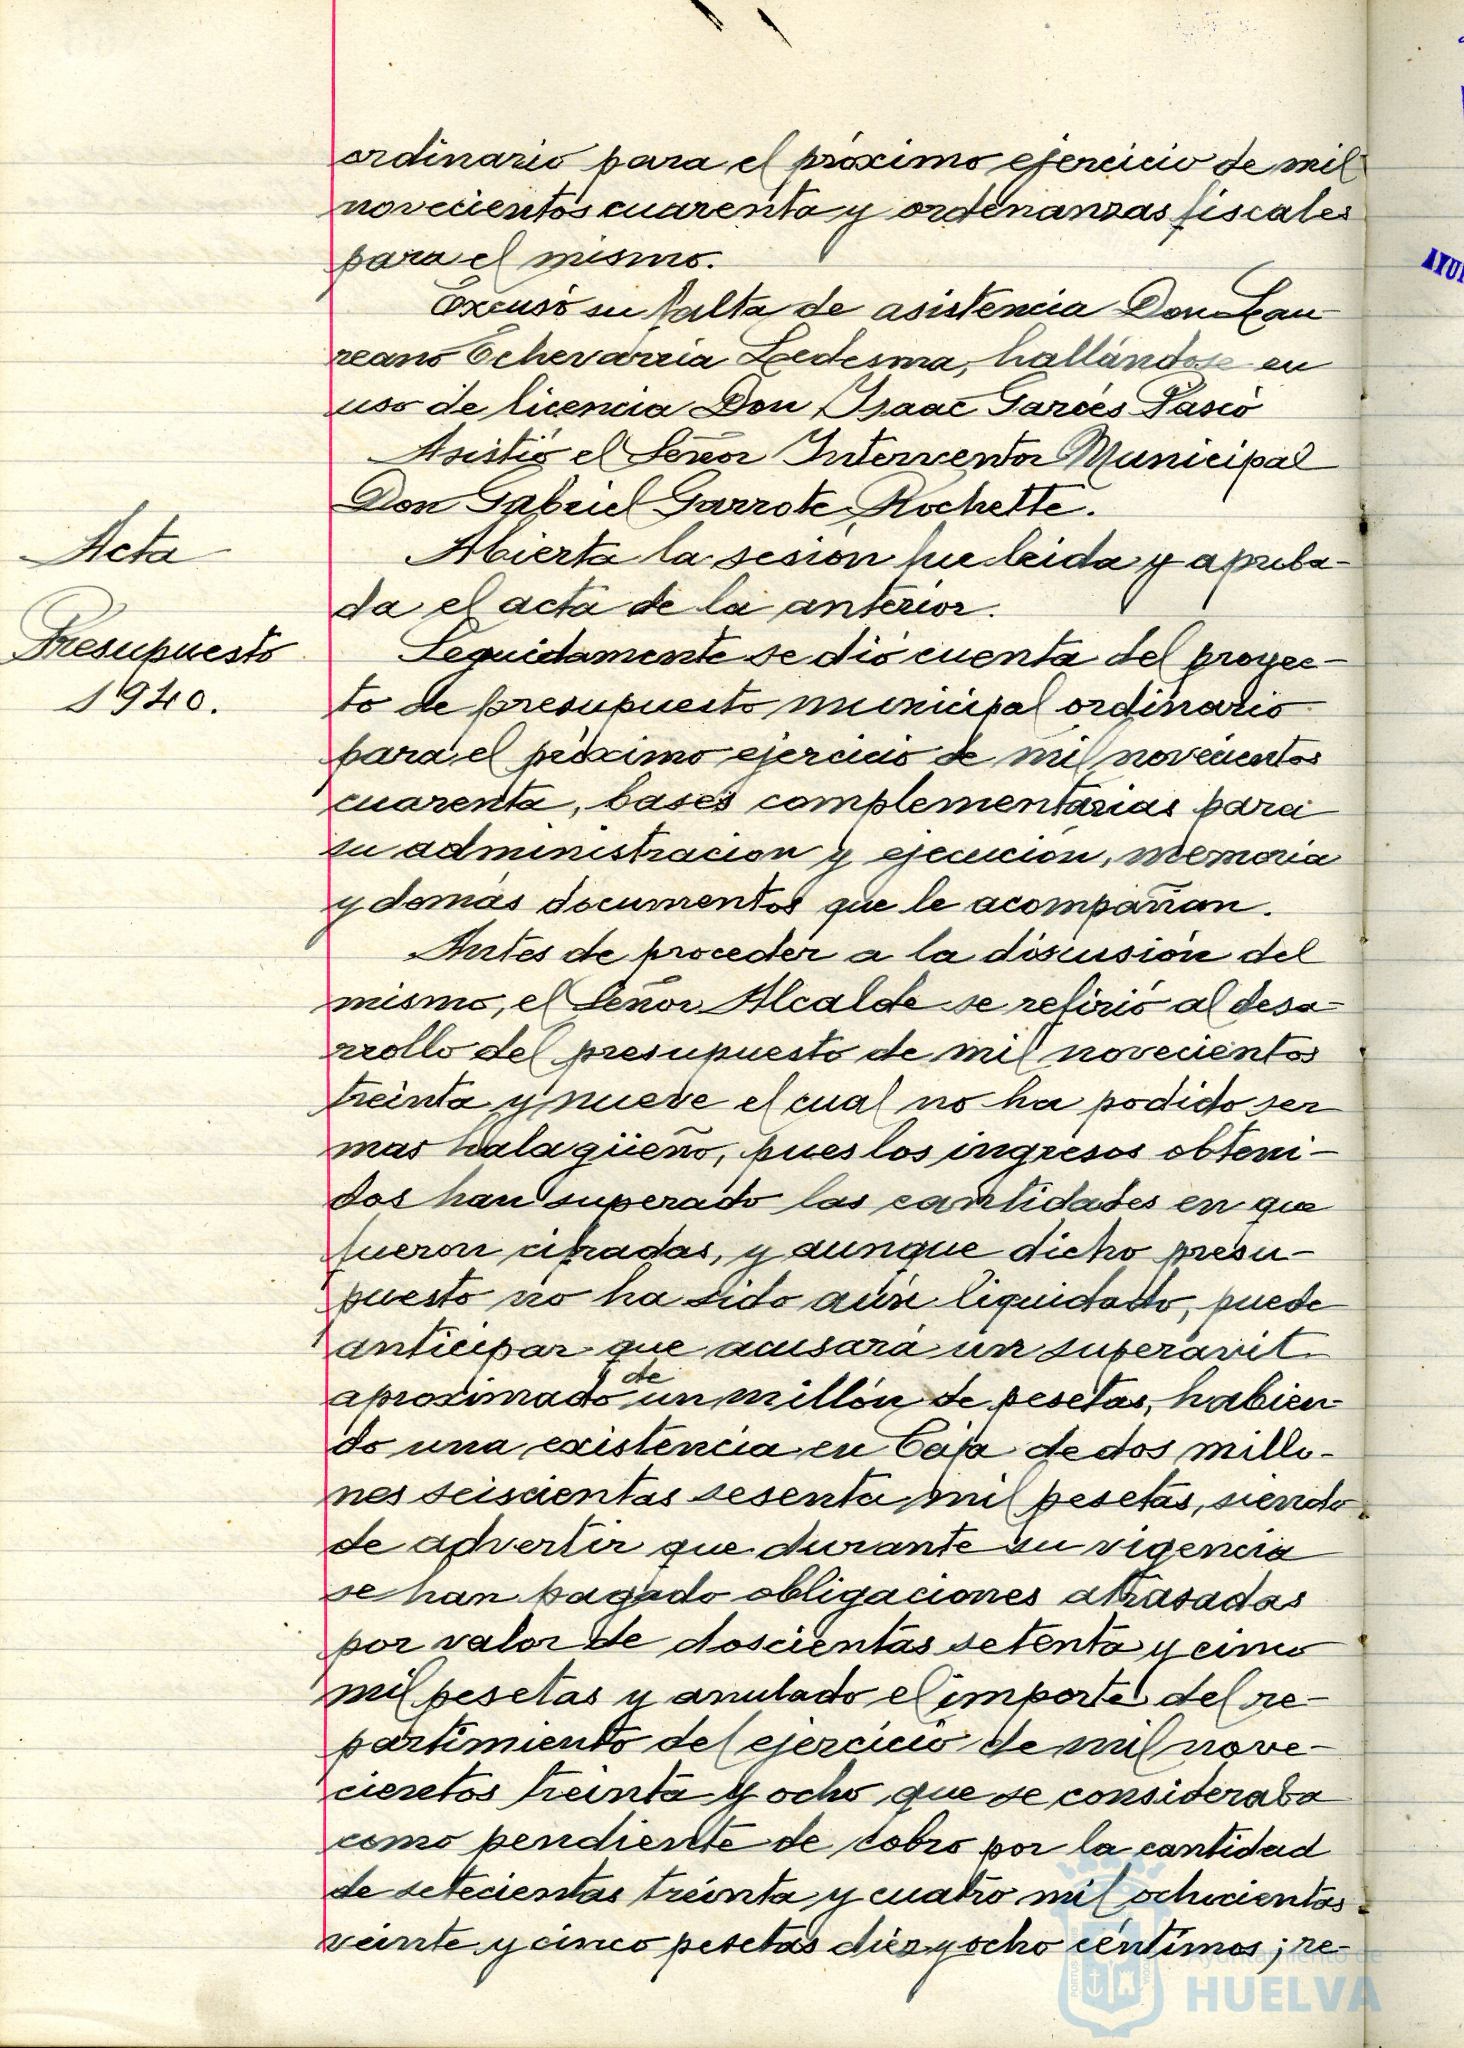 ordinario para el próximo ejercicio de mil
novecientos cuarenta y ordenanzas fiscales
para el mismo.
Excusó su falta de asistencia Don Lau-
reano Echevarria Ledesma, hallándose en
uso de licencia Don Isaac Garcés Pasió
Asistió el Señor Interventor Municipal
Don Gabriel Garrote Rochette.
Acta
Abierta la sesión fue leida y aproba-
da el acta de la anterior.
Presupuesto
1940.
Seguidamente se dió cuenta del proyec-
to de presupuesto municipal ordinario
para el próximo ejercicio de mil novecientos
cuarenta, bases complementarias para
su administración y ejecución, memoria
y demás documentos que le acompañan.
Antes de proceder a la discusión del
mismo, el Señor Alcalde se refirió al desa-
rrollo del presupuesto de mil novecientos
treinta y nueve el cual no ha podido ser
mas halagüeño, pues los ingresos obteni-
dos han superado las cantidades en que
fueron cifradas, y aunque dicho presu-
puesto no ha sido aún liquidado, puede
anticipar que acusará un superávit
aproximado de un millón de pesetas, habien-
do una existencia en Caja de dos millo-
nes seiscientas sesenta mil pesetas, siendo
de advertir que durante su vigencia
se han pagado obligaciones atrasadas
por valor de doscientas setenta y cinco
mil pesetas y anulado el importe del re-
partimiento del ejercicio de mil nove-
cientos treinta y ocho que se consideraba
como pendiente de cobro por la cantidad
de setecientas treinta y cuatro mil ochocientas
veinte y cinco pesetas diez y ocho céntimos; re-
Ayuntamiento de
HUELVA